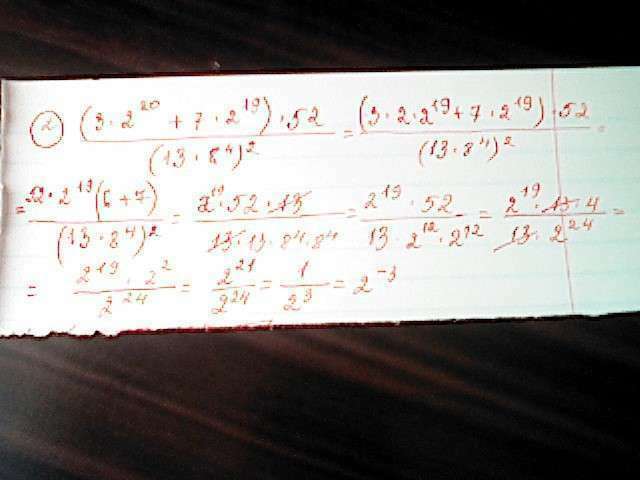 2 (3·2^20 + 7·2^19)·52/(13·8^4)^2 = (3·2·2^19 + 7·2^19)·52/(13·8^4)^2 =
= 52·2^19(6+7)/(13·8^4)^2 = 2^19·52·13/13·13·8^4·8^4 = 2^19·52/13·2^12·2^12 = 2^19·13·4/13·2^24 =
= 2^19·2^2/2^24 = 2^21/2^24 = 1/2^3 = 2^-3